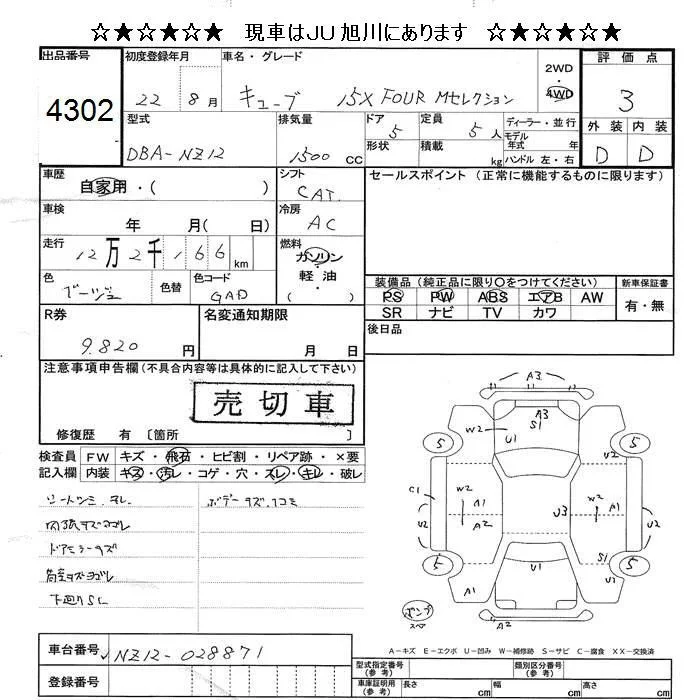 ☆★☆★☆★ 現車はJU旭川にあります ☆★☆★☆★
出品番号
4302
初度登録年月
22 8月
車名・グレード
キューブ 15X FOUR Mセレクション
2WD
4WD
評価点
3
外装 内装
D D
型式
DBA-NZ12
排気量
1500 cc
ドア
5
形状
定員
5人
積載
kg
ディーラー・並行
モデル
年式 年
ハンドル 左・右
車歴
自家用・( )
シフト
CAT.
車検
年 月( 日)
冷房
AC
走行
12万2千166km
燃料
ガソリン
軽油
( )
色
ベージュ
色替
色コード
GAD
セールスポイント(正常に機能するものに限ります)
装備品(純正品に限り○をつけてください)
PS PW ABS エアB AW
SR ナビ TV カワ
新車保証書
有・無
後日品
R券
9.820円
名変通知期限
月 日
注意事項申告欄(不具合内容等は具体的に記入して下さい)
売切車
修復歴 有 〔箇所 〕
検査員 FW キズ・飛石・ヒビ割・リペア跡・×要
記入欄 内装 キズ・汚レ・コゲ・穴・スレ・キレ・破レ
シートシミ.ヨレ.
内張キズヨゴレ
ドアミラーキズ
荷室キズヨゴレ
下廻りSC
ボデーキズ.凹コミ
A3
A3
S1
W2
U1
5
5
C1
U2
W2
A1
A2
U3
W2
A1
U2
5
5
S1
U1
A1
U1
A2
パンク
スペア
A-キズ E-エクボ U-凹み W-補修跡 S-サビ C-腐食 XX-交換済
車台番号
NZ12-028871
登録番号
型式指定番号
(参考)
類別区分番号
(参考)
車庫証明用
(参考)
長さ cm
幅 cm
高さ cm